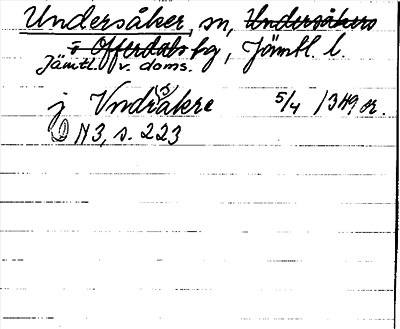 Undersåker, sn, Undersåkers
o Offerdals hg, Jämtl. l.
Jämtl. v. doms.
j Vndråkre 5/4 1349 or.
N3, s. 223